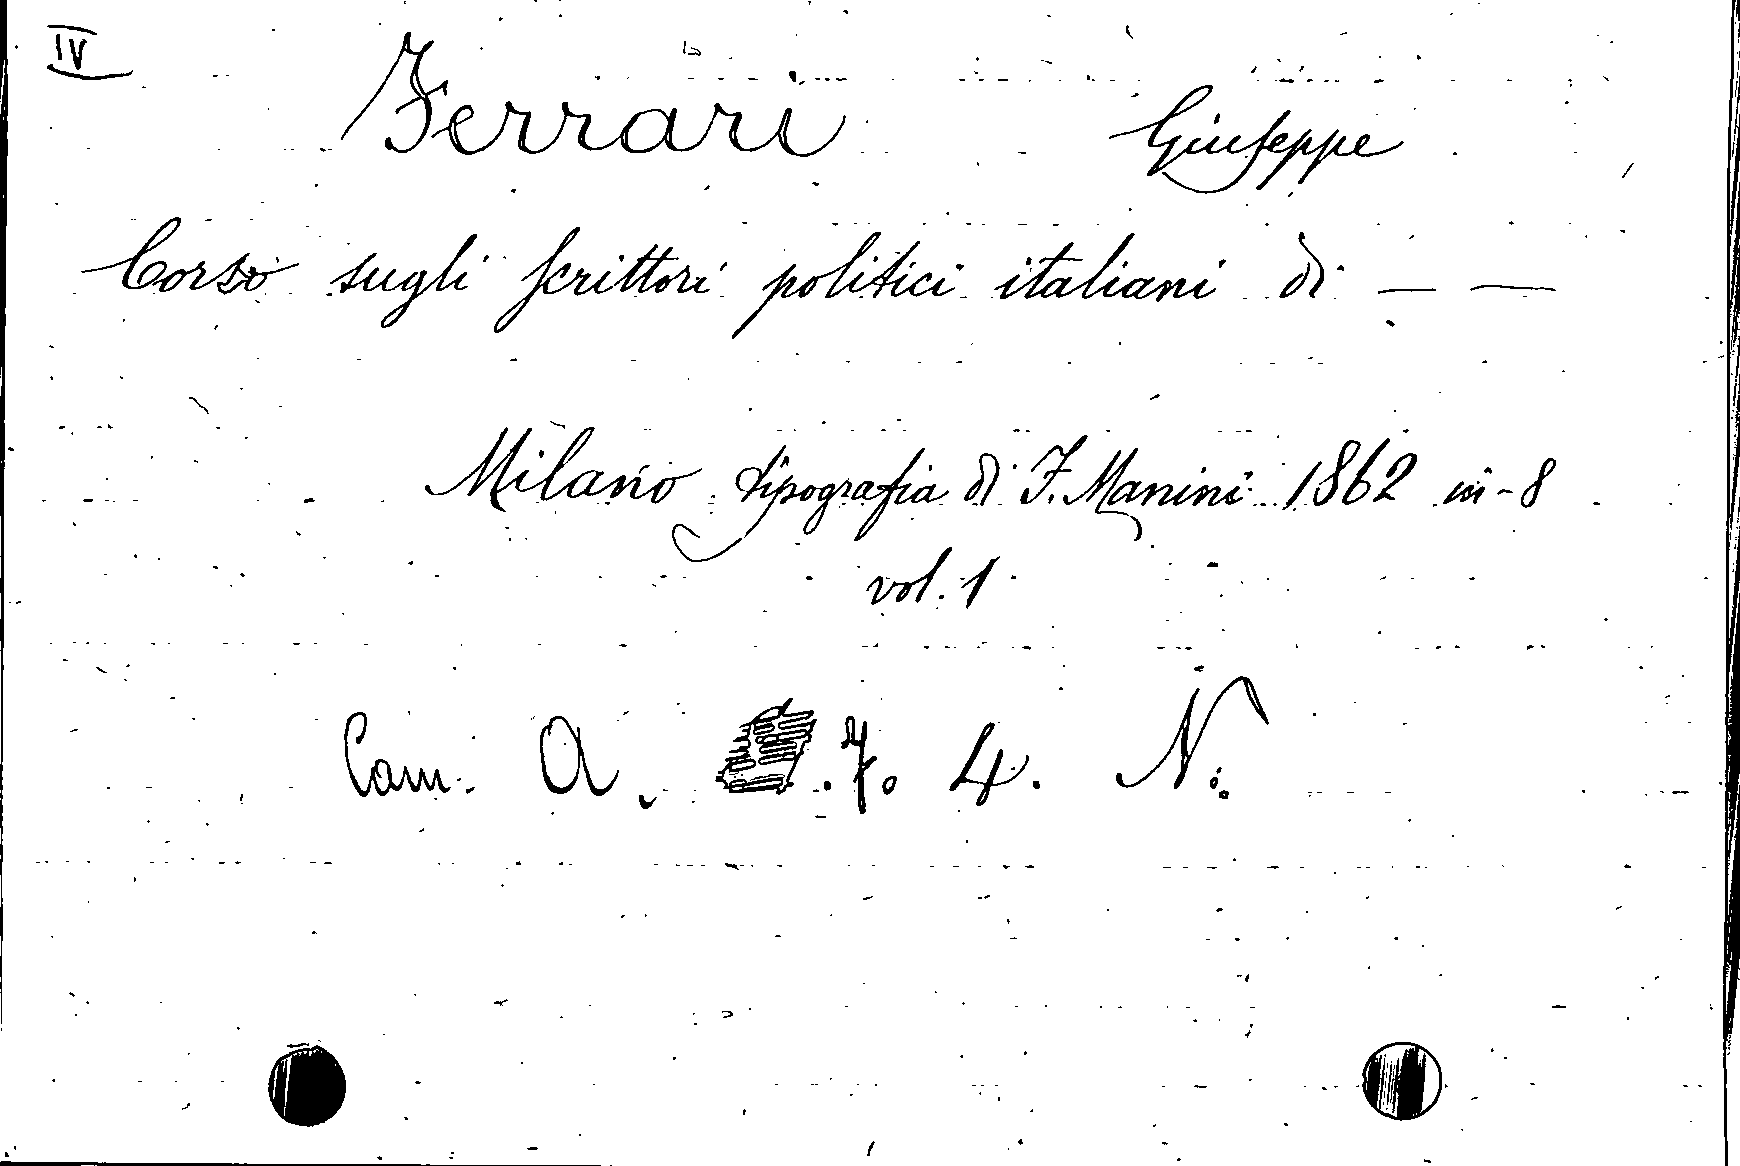 IV
Ferrari Giuseppe
Corso sugli scrittori politici italiani di — —
Milano tipografia di F. Manini 1862 in-8
vol. 1
Cam. A. . 7. 4. N.